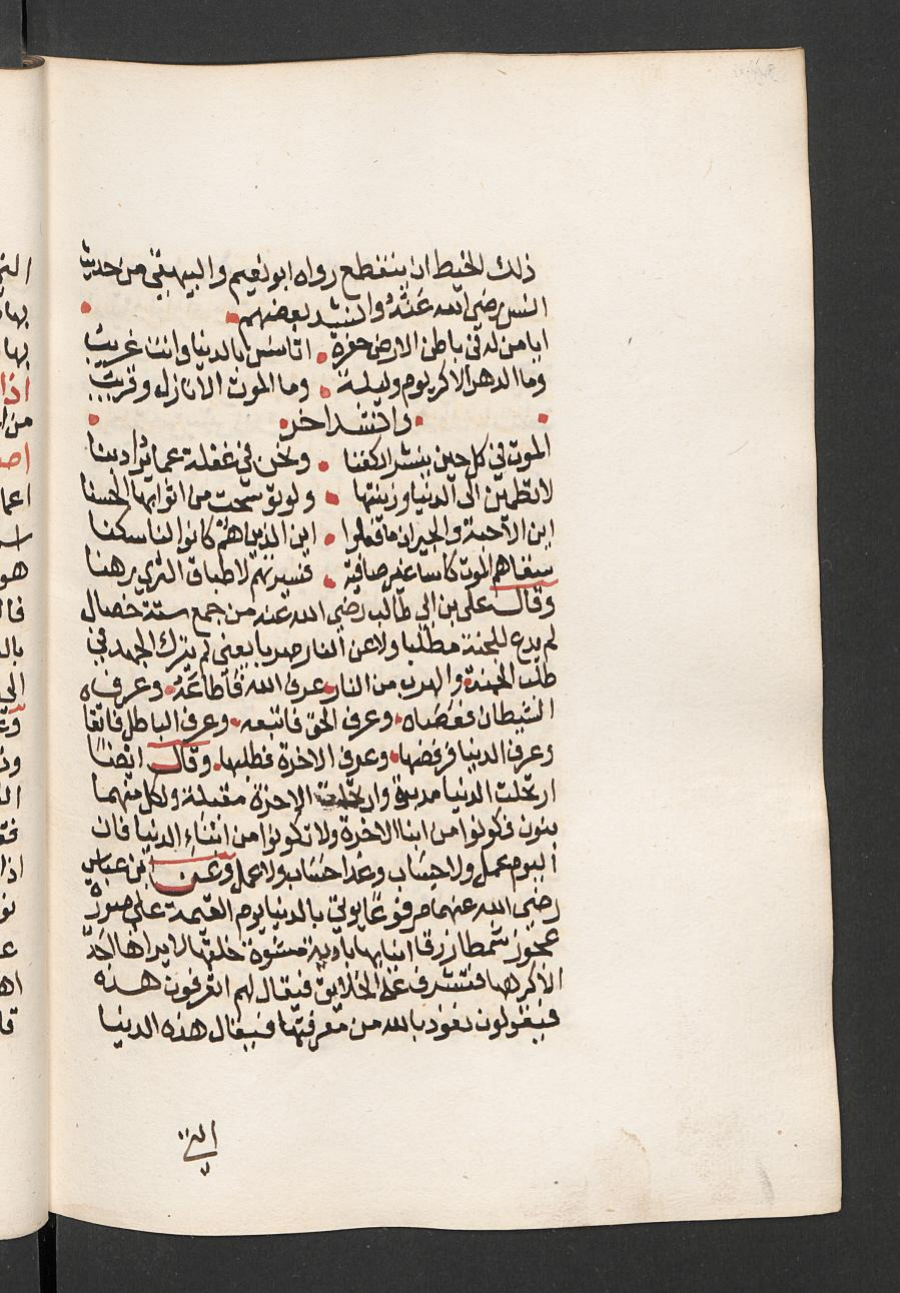 ذلك الخيط ان ينقطع رواه ابو نعيم والبيهقي من حديث
انس رضي الله عنه وانشد بعضهم
ايا من له في باطن الارض حفرة اتانس بالدنيا وانت غريب
وما الدهر الا كر يوم وليلة وما الموت الا نازل وقريب
وانشد اخر
الموت في كل حين ينشر الكفنا ونحن في غفلة عما يراد بنا
لا تطمئن الى الدنيا وزينتها ولو توشحت من اثوابها الحسنا
اين الاحبة والجيران ما فعلوا اين الذين هم كانوا لنا سكنا
سقاهم الموت كاسا غير صافية فصيرتهم لاطباق الثرى رهنا
وقال علي بن ابي طالب رضي الله عنه من جمع ستة خصال
لم يدع للجنة مطلبا ولا عن النار مهربا يعني لم يترك الجهد في
طلب الجنة والهرب من النار عرف الله فاطاعه وعرف
الشيطان فعصاه وعرف الحق فاتبعه وعرف الباطل فاتقاه
وعرف الدنيا فرفضها وعرف الاخرة فطلبها وقال ايضا
ارتحلت الدنيا مدبرة وارتحلت الاخرة مقبلة ولكل منهما
بنون فكونوا من ابنا الاخرة ولا تكونوا من ابناء الدنيا فان
اليوم عمل ولا حساب وغدا حساب ولا عمل وعن ابن عباس
رضي الله عنهما مرفوعا يوتى بالدنيا يوم القيمة على صورة
عجوز شمطا زرقا انيابها بادية مشوه خلقها لا يراها احد
الا كرهها فتشرف على الخلايق فيقال لهم اتعرفون هذه
فيقولون نعوذ بالله من معرفتها فيقال هذه الدنيا
التي